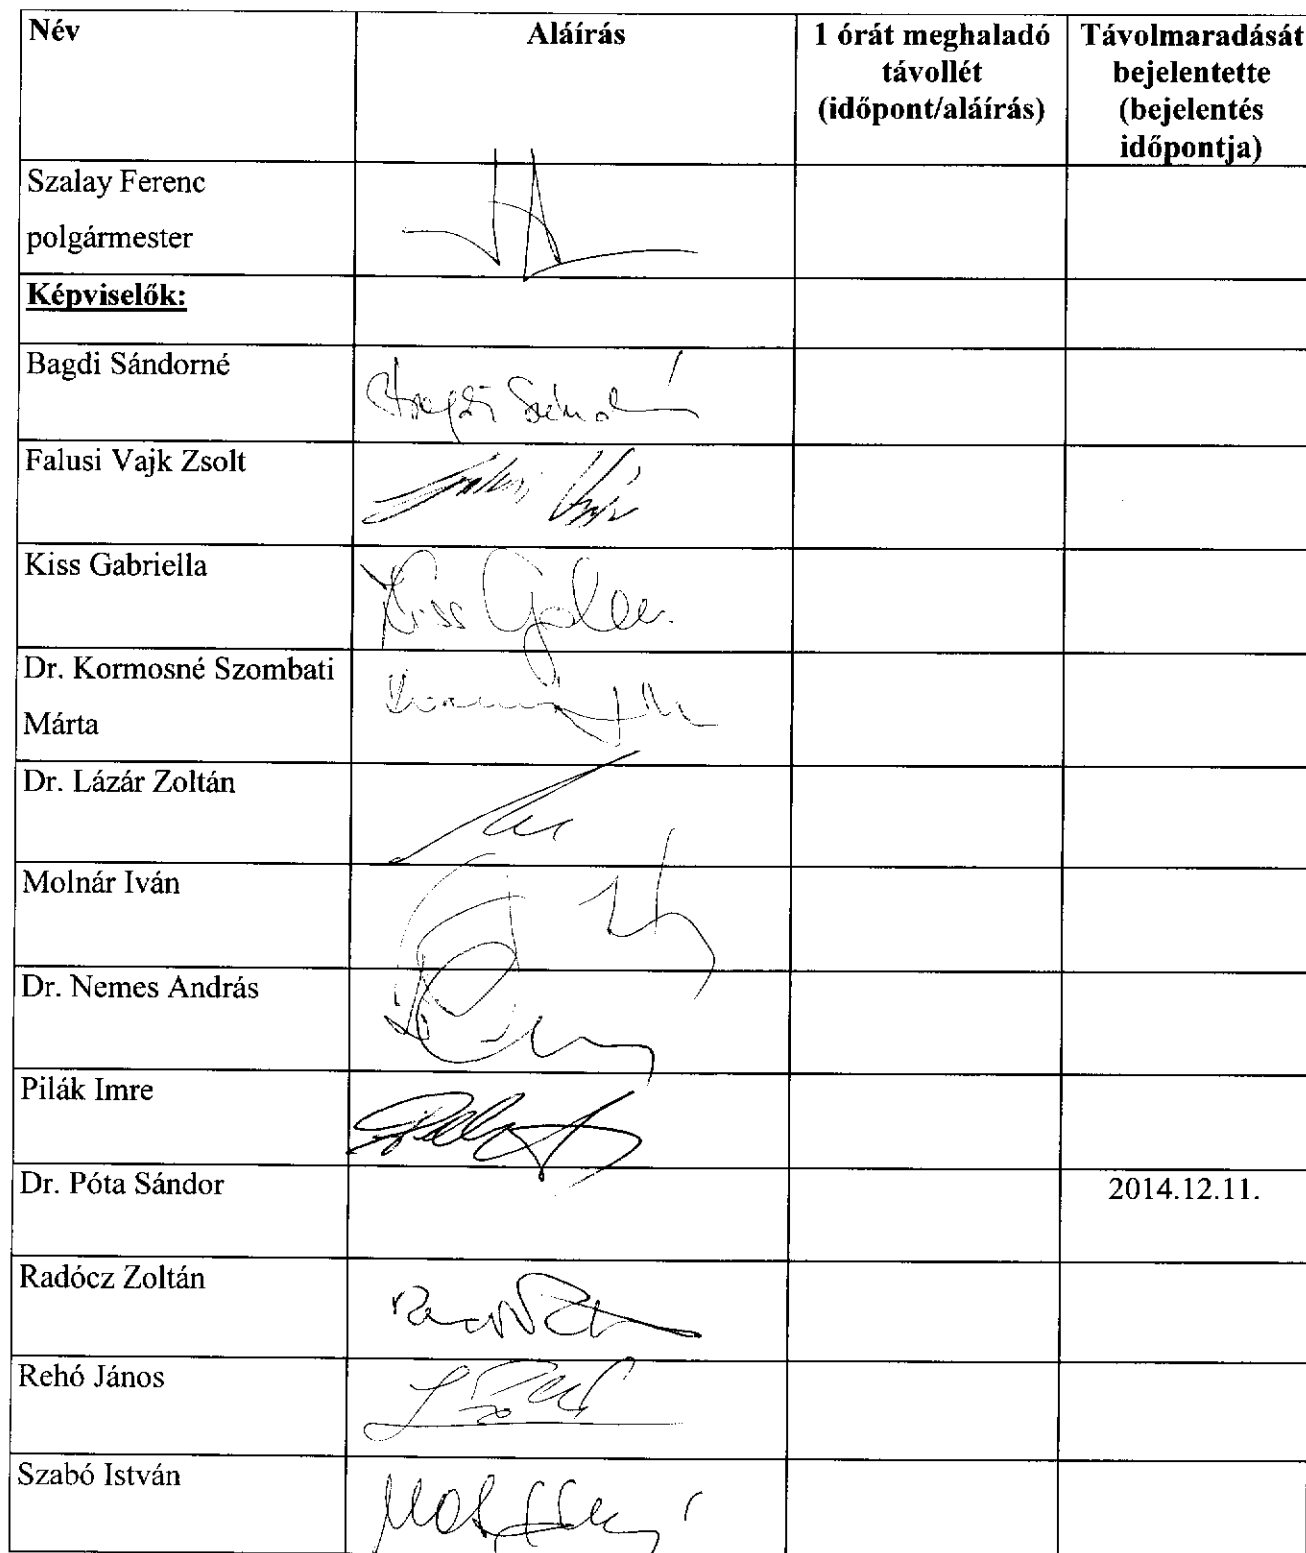 Név
Aláírás
1 órát meghaladó
távollét
(időpont/aláírás)
Távolmaradását
bejelentette
(bejelentés
időpontja)
Szalay Ferenc
polgármester
Képviselők:
Bagdi Sándorné
Falusi Vajk Zsolt
Kiss Gabriella
Kiss
Dr. Kormosné Szombati
Márta
Dr. Lázár Zoltán
Molnár Iván
Dr. Nemes András
Pilák Imre
Dr. Póta Sándor
2014.12.11.
Radócz Zoltán
Rehó János
Szabó István